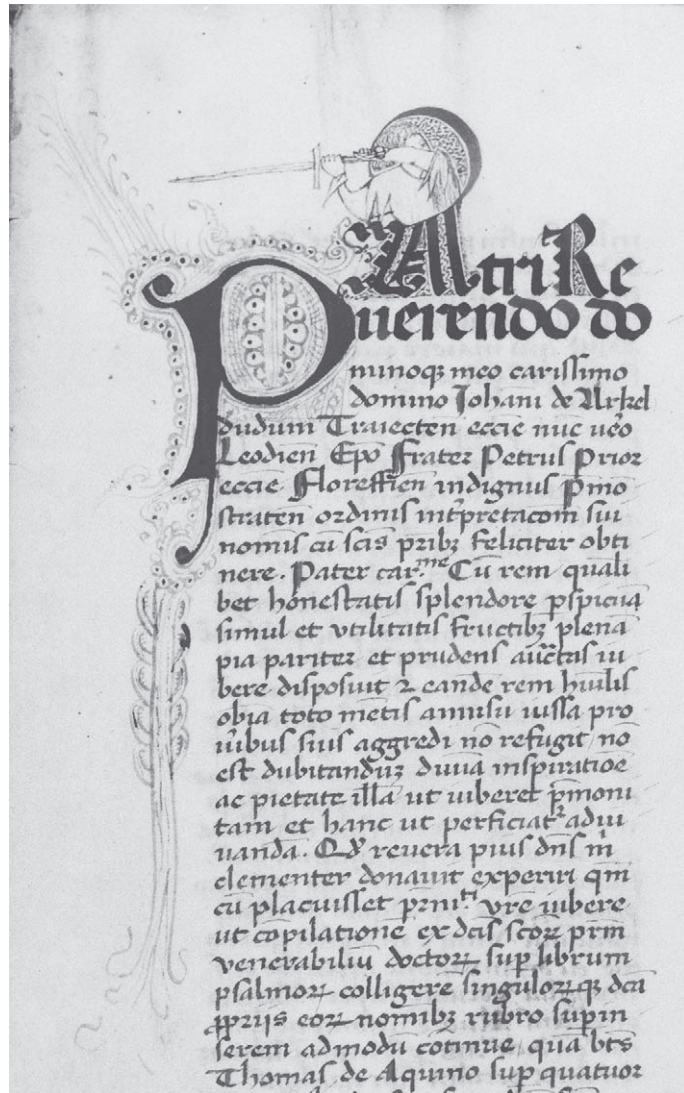 PAtri Re
uerendo do
minoqꝫ meo carissimo
domino Johāni de Arkel
dudum Traiecten̄ eccīe nūc ūo
Leodien̄ Epō Frater Petrus Prior
eccīe Floreffien̄ indignus p̄mo
straten̄ ordinis int̄pretacōm̄ sui
nominis cū scīs p̄ribꝫ feliciter obti
nere. Pater car.me Cū rem quali
bet honestatis splendore ꝑspicuā
simul et vtilitatis fructibꝫ plenā
pia pariter et prudens auctās iu
bere disposuit ⁊ eandē rem hūilis
obīa toto mētis annisu iussa pro
uiribus suis aggredi nō refugit nō
est dubitandūꝫ diuīa inspiratiōe
ac pietate illā ut iuberet p̄moni
tam et hanc ut perficiat᷑ adiu
uandā. Qd̄ reuera pius dn̄s m̄
clementer donauit experiri qm̄
cū placuisset pr̄ni.ti vr̄e iubere
ut cōpilationē ex dcīs scōꝝ pr̄m
venerabiliū doctoꝝ suꝑ librum
psalmoꝝ colligerē singuloꝝqꝫ dcā
ꝓpriis eoꝝ nomībꝫ rubro suꝑin
serem admodū cōtinue quā bt̄s
Thomas de Aquino suꝑ quatuor